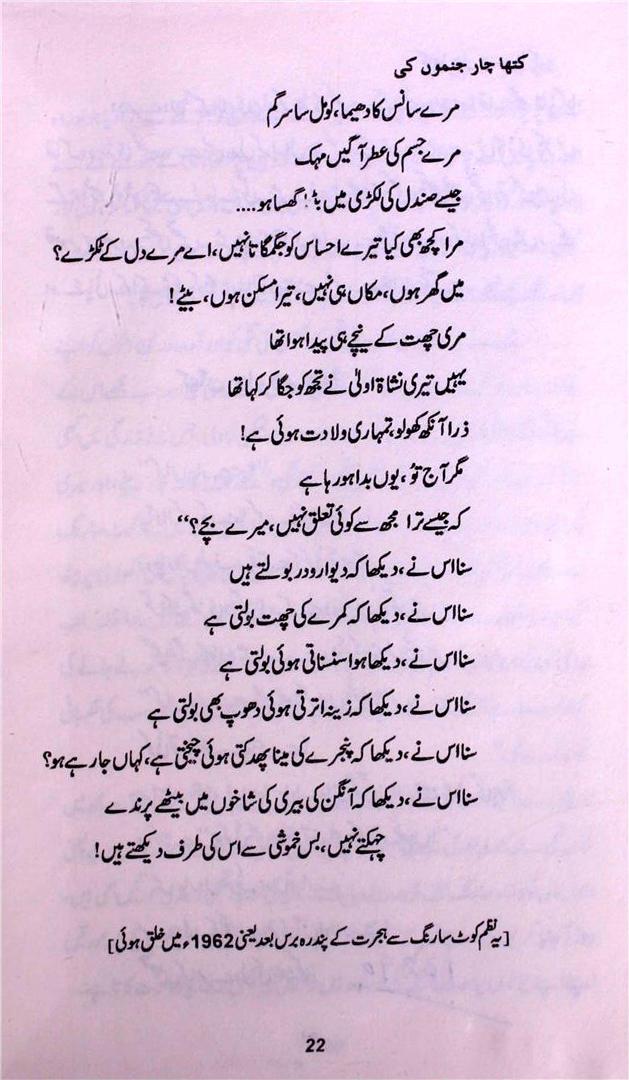 کتھا چار جنموں کی
مرے سانس کا دھیما، کومل سا سرگم
مرے جسم کی عطر آگیں مہک
جیسے صندل کی لکڑی میں گھسا ہو....
مرا کچھ بھی کیا تیرے احساس کو جگمگاتا نہیں، اے مرے دل کے ٹکڑے؟
میں گھر ہوں، مکاں ہی نہیں، تیرا مسکن ہوں، بیٹے!
مری چھت کے نیچے ہی پیدا ہوا تھا
یہیں تیری نشاۃ اولیٰ نے تجھ کو جگا کر کہا تھا
ذرا آنکھ کھولو، تمہاری ولادت ہوئی ہے!
مگر آج تُو، یوں بدا ہو رہا ہے
کہ جیسے ترا مجھ سے کوئی تعلق نہیں، میرے بچے؟“
سنا اس نے، دیکھا کہ دیوار و در بولتے ہیں
سنا اس نے، دیکھا کہ کمرے کی چھت بولتی ہے
سنا اس نے، دیکھا ہوا سنسناتی ہوئی بولتی ہے
سنا اس نے، دیکھا کہ زینہ اترتی ہوئی دھوپ بھی بولتی ہے
سنا اس نے، دیکھا کہ پنجرے کی مینا پھدکتی ہوئی چیختی ہے، کہاں جا رہے ہو؟
سنا اس نے، دیکھا کہ آنگن کی بیری کی شاخوں میں بیٹھے پرندے
چہکتے نہیں، بس خموشی سے اس کی طرف دیکھتے ہیں!
[یہ نظم کوٹ سارنگ سے ہجرت کے پندرہ برس بعد یعنی 1962ء میں خلق ہوئی]
22